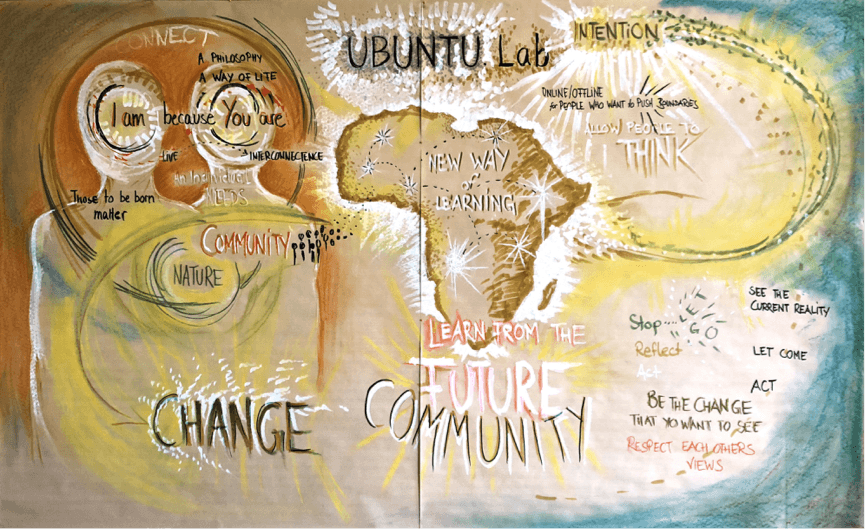 CONNECT
A PHILOSOPHY
A WAY OF LIFE
I am because You are
LIVE
INTERCONNECTENCE
NEEDS
Those to be born
matter
COMMUNITY
NATURE
CHANGE
UBUNTU Lab
INTENTION
ONLINE/OFFLINE
for PEOPLE WHO WANT to PUSH BOUNDARIES
ALLOW PEOPLE TO
THINK
NEW WAY
OF
LEARNING
LEARN FROM THE
FUTURE
COMMUNITY
Stop
LET
GO
Reflect
Act
SEE THE
CURRENT REALITY
LET COME
ACT
BE THE CHANGE
THAT YO WANT TO SEE
RESPECT EACH OTHERS
VIEWS